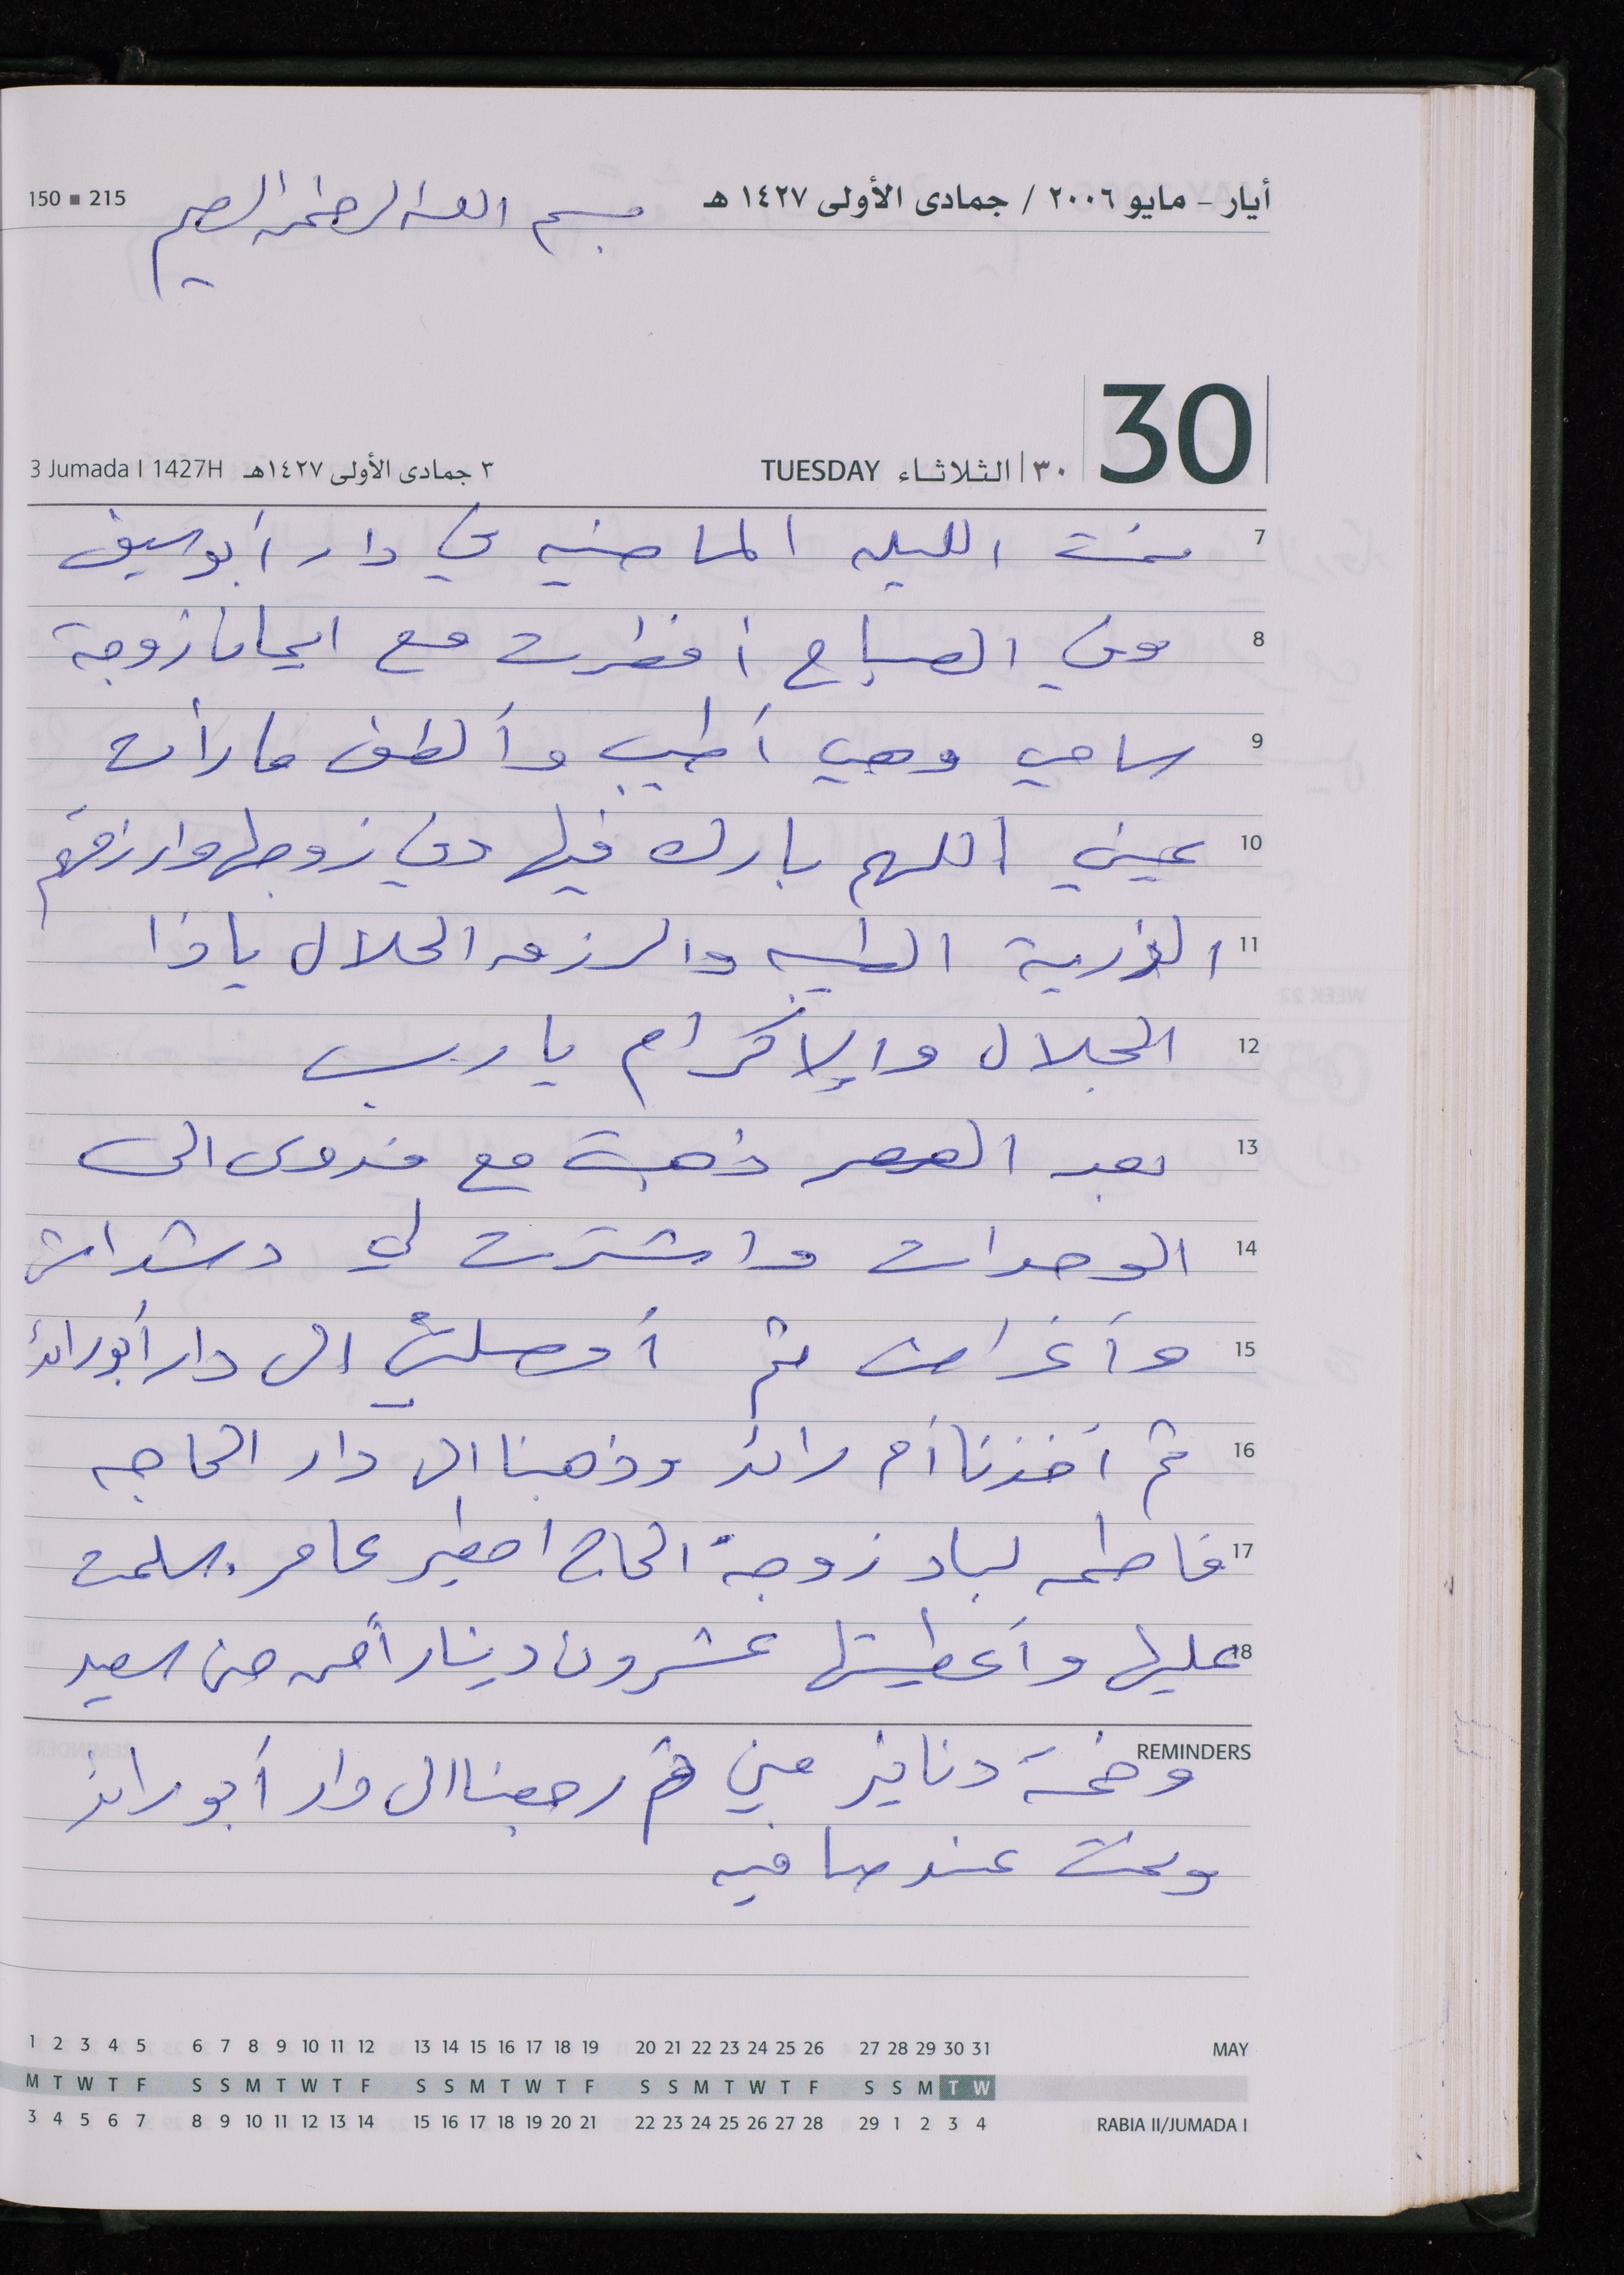 أيار - مايو ٢٠٠٦ / جمادى الأولى ١٤٢٧ هـ بسم الله الرحمن الرحيم 150 ■ 215
30
٣٠ الثلاثاء TUESDAY ٣ جمادى الأولى ١٤٢٧هـ 3 Jumada I 1427H
7 نمت الليله الماضيه في دار أبو سيف
8 وفي الصباح أفطرت مع ايمان زوجة
9 سامي وهي أطيب وألطف ما رأت
10 عيني اللهم بارك فيها وفي زوجها وارزقهم
11 الذرية الطيبه والرزق الحلال ياذا
12 الجلال والإكرام يا رب
13 بعد العصر ذهبت مع فدوى الى
14 الوحدات واشترت لي دشداش
15 وأغراض ثم أوصلتني الى دار أبو رائد
16 ثم أخذنا أم رائد وذهبنا الى دار الحاجه
17 فاطمه لباد زوجة الحاج اصطير عامر. سلمت
18 عليها وأعطيتها عشرون ديناراً من سعيد
REMINDERS
وخمسة دنانير مني ثم رجعنا الى دار أبو رائد
ونمت عند صافيه
1 2 3 4 5 6 7 8 9 10 11 12 13 14 15 16 17 18 19 20 21 22 23 24 25 26 27 28 29 30 31 MAY
M T W T F S S M T W T F S S M T W T F S S M T W T F S S M T W
3 4 5 6 7 8 9 10 11 12 13 14 15 16 17 18 19 20 21 22 23 24 25 26 27 28 29 1 2 3 4 RABIA II/JUMADA I